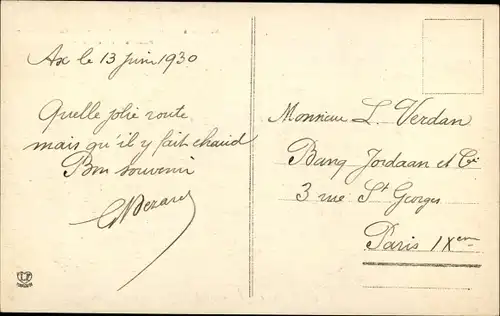 Ax le 13 Juin 1930
Quelle jolie route
mais qu'il y fait chaud
Bon souvenir
Monsieur L. Verdan
Banq Jordaan et Cie
3 rue St Georges
Paris IXem